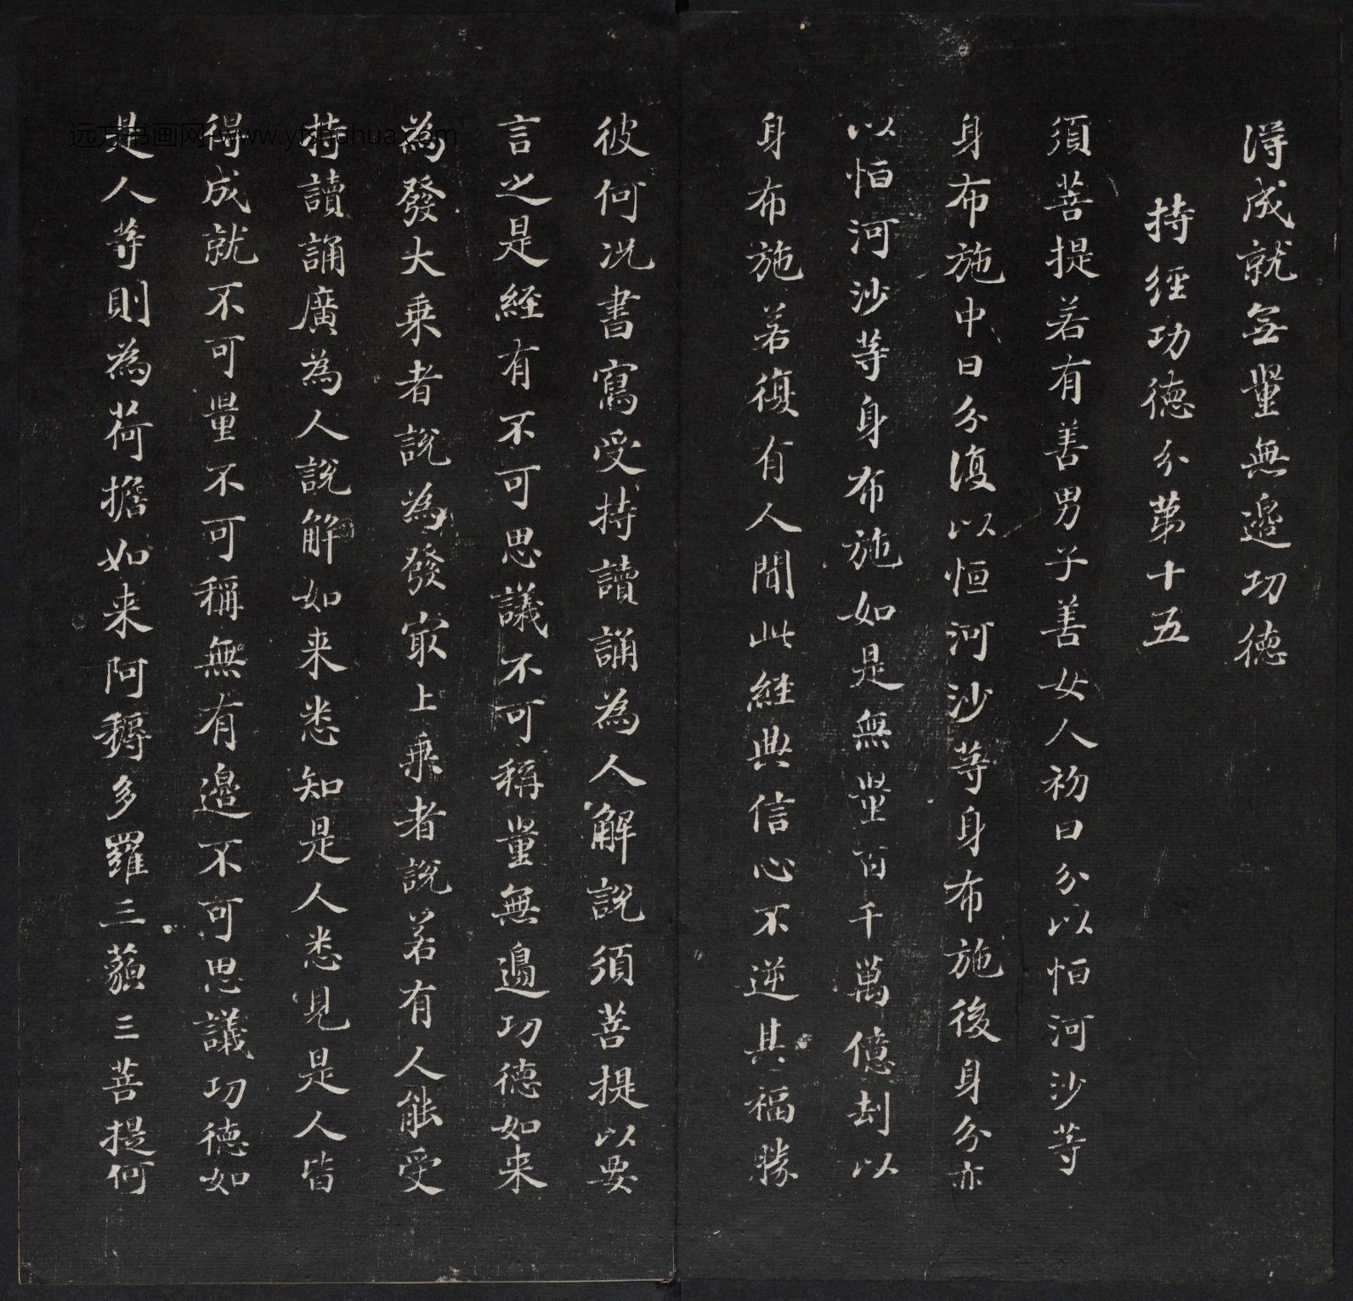 得成就無量無邊功德
持經功德分第十五
須菩提若有善男子善女人初日分以恒河沙等
身布施中日分復以恒河沙等身布施後身分亦
以恒河沙等身布施如是無量百千萬億劫以
身布施若復有人聞此經典信心不逆其福勝
彼何况書寫受持讀誦為人解說須菩提以要
言之是經有不可思議不可稱量無邊功德如来
為發大乗者說為發冣上乗者說若有人能受
持讀誦廣為人說解如来悉知是人悉見是人皆
得成就不可量不可稱無有邊不可思議功德如
是人等則為荷擔如来阿耨多羅三藐三菩提何
远方书画网 www.yfshuhua.com